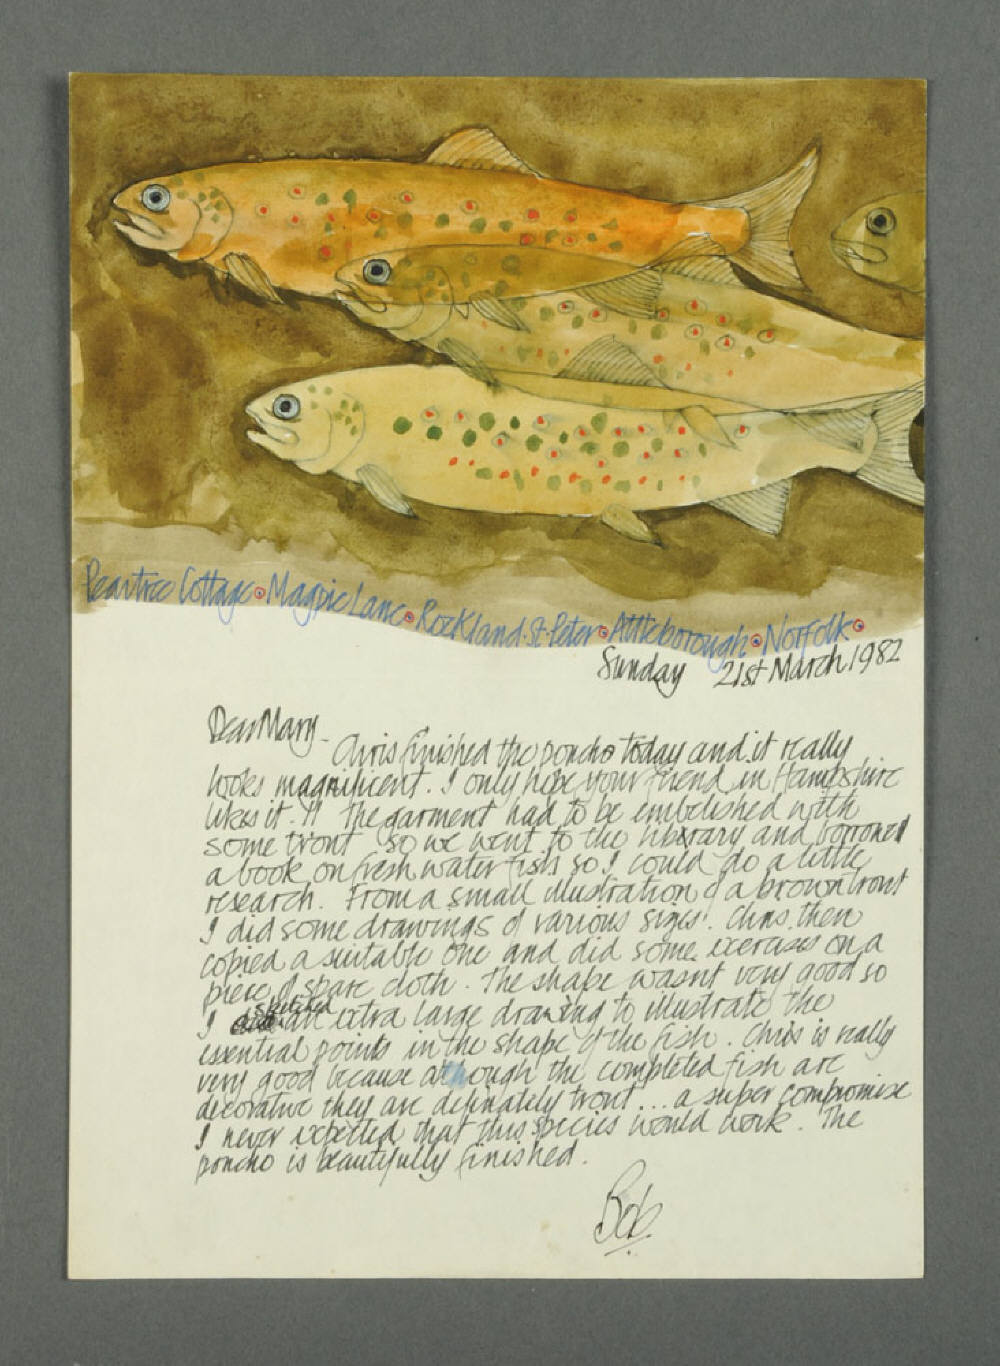 Peartree Cottage • Magpie Lane • Rockland • St • Peter • Attleborough • Norfolk •
Sunday 21st March 1982
Dear Mary -
Chris finished the poncho today and it really
looks magnificent. I only hope your friend in Hampshire
likes it. The garment had to be embelished with
some trout so we went to the library and borrowed
a book on fresh water fish so I could do a little
research. From a small illustration of a brown trout
I did some drawings of various sizes. Chris then
copied a suitable one and did some exercises on a
piece of spare cloth. The shape wasnt very good so
I sketched an extra large drawing to illustrate the
essential points in the shape of the fish. Chris is really
very good because although the completed fish are
decorative they are definately trout ... a super compromise
I never expected that this species would work. The
poncho is beautifully finished.
Bob